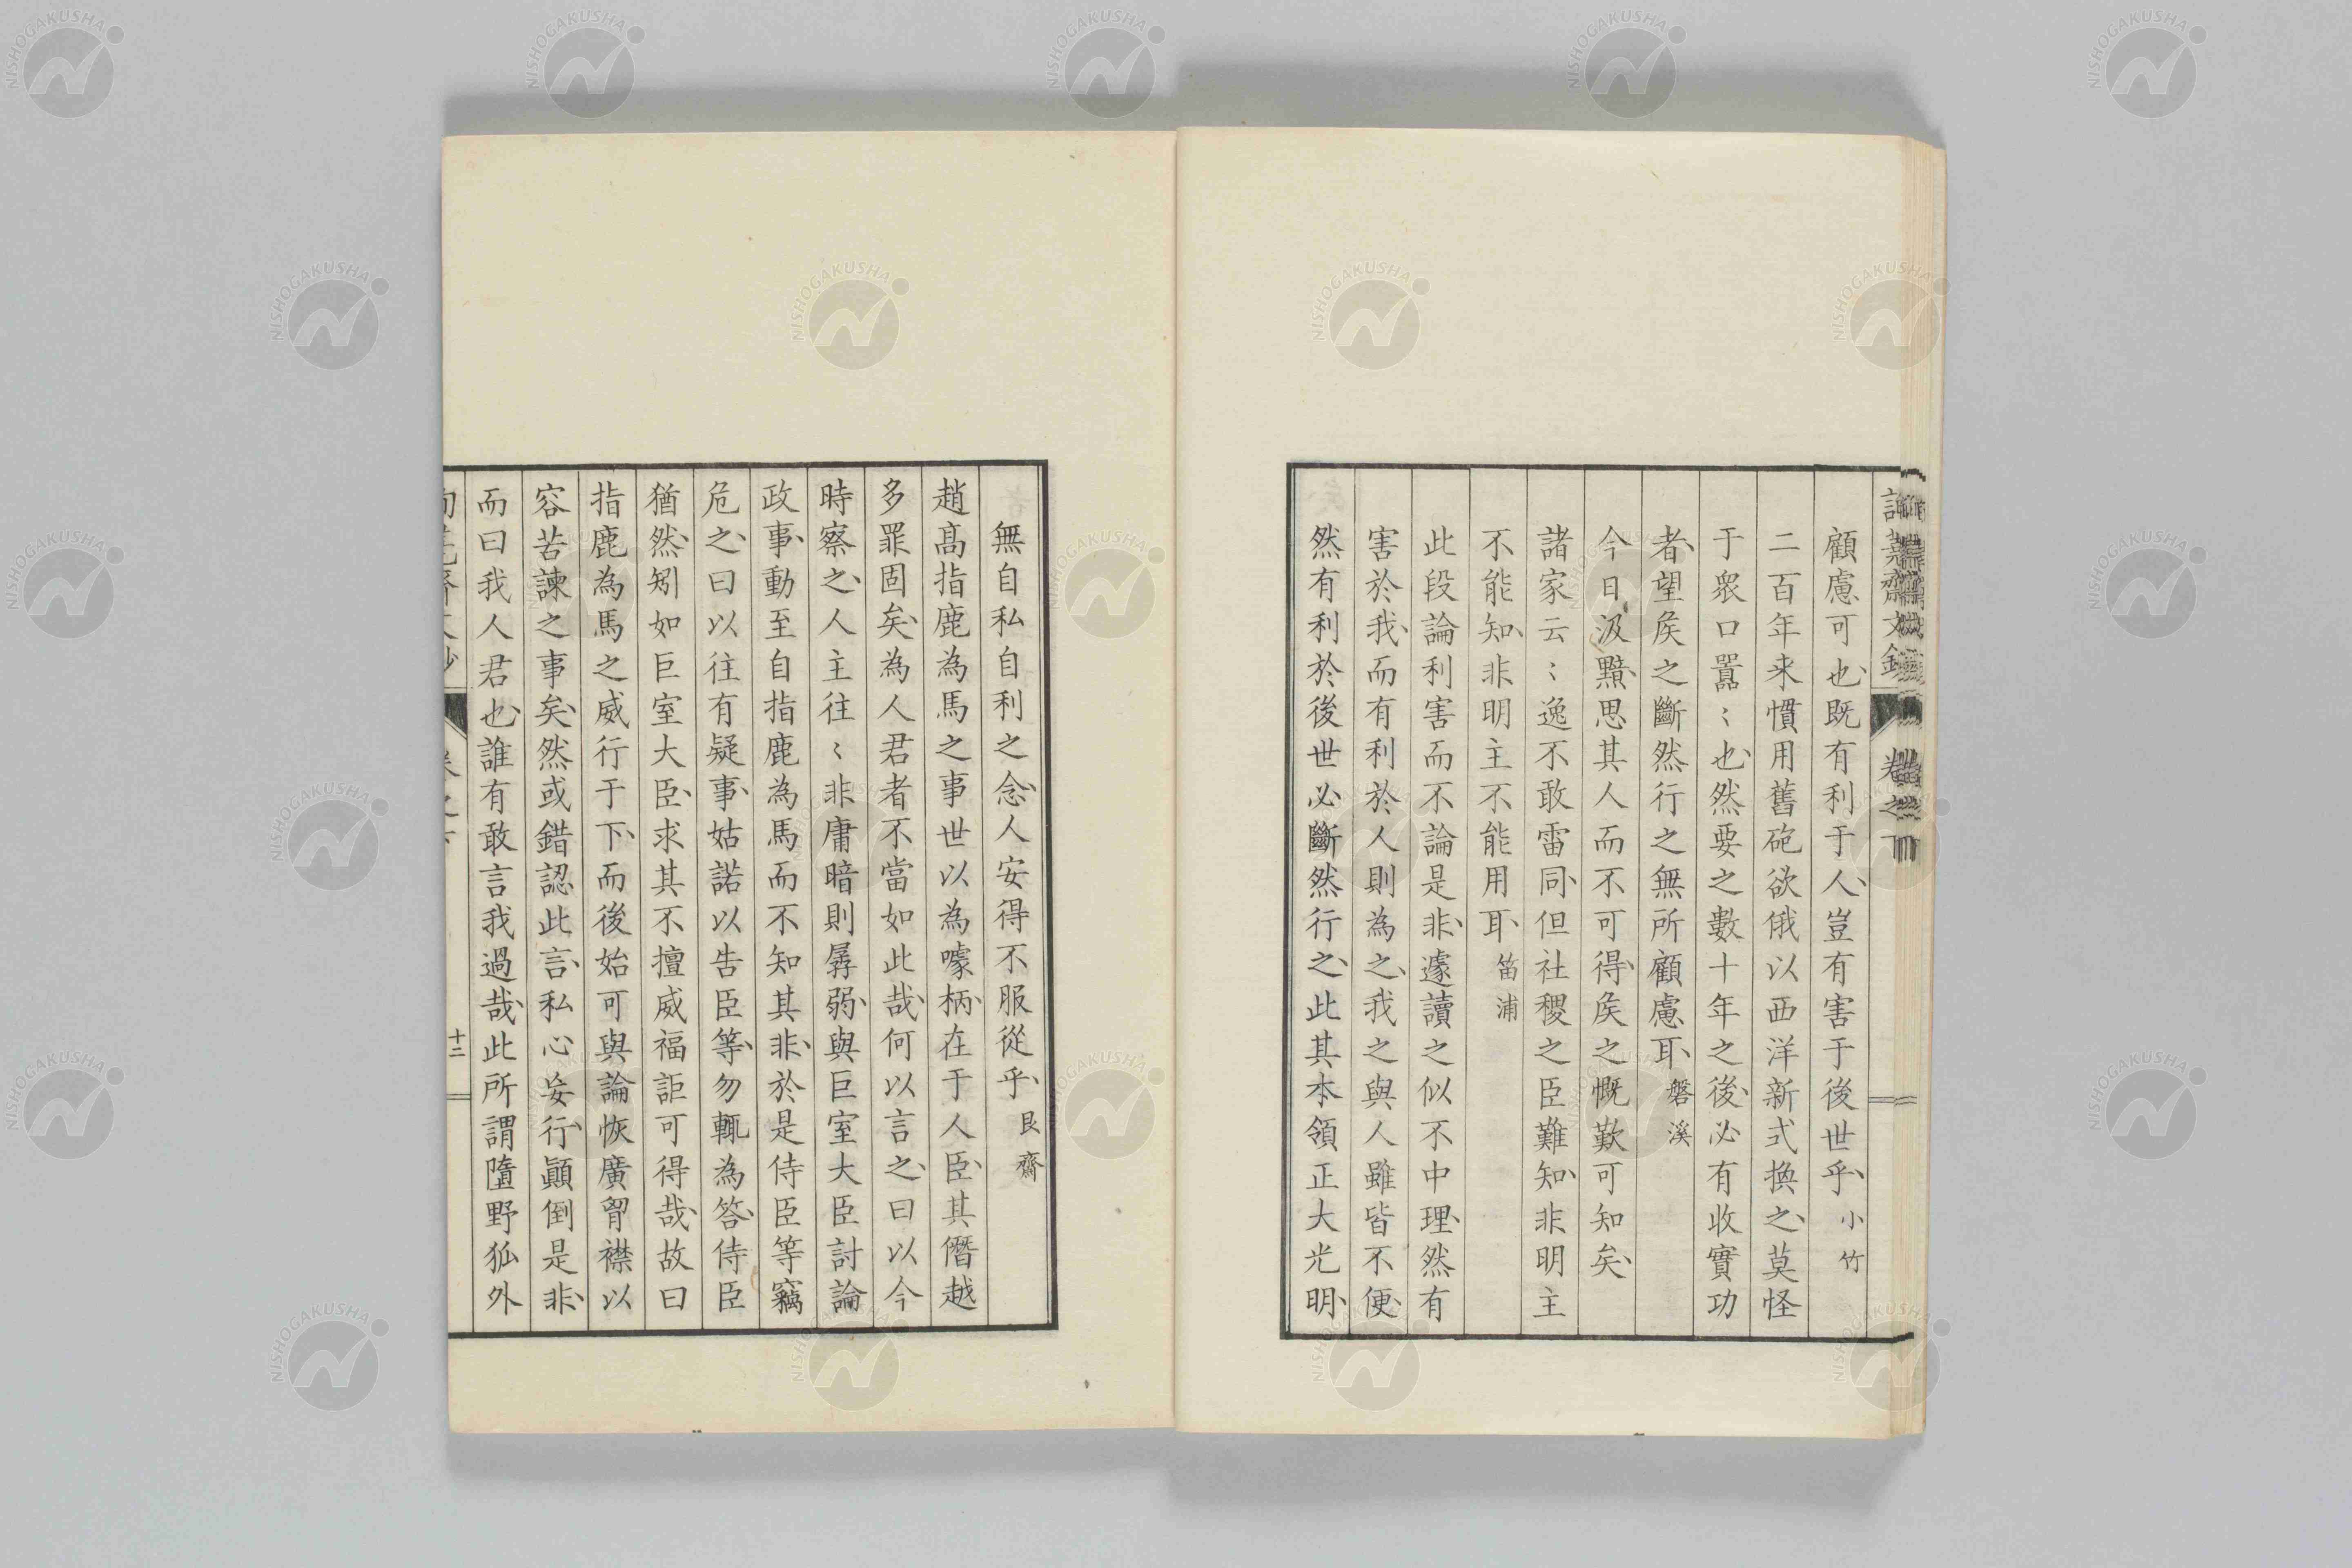 顧慮可也既有利于人豈有害于後世乎 小竹
二百年来慣用舊砲欲俄以西洋新式換之莫怪
于衆口囂〻也然要之數十年之後必有收實功
者望矦之斷然行之無所顧慮耳 磐溪
今日汲黯思其人而不可得矦之慨歎可知矣
諸家云〻逸不敢雷同但社稷之臣難知非明主
不能知非明主不能用耳 笛浦
此段論利害而不論是非遽讀之似不中理然有
害於我而有利於人則為之我之與人雖皆不便
然有利於後世必斷然行之此其本領正大光明
無自私自利之念人安得不服從乎 艮齋
趙高指鹿為馬之事世以為噱柄在于人臣其僭越
多罪固矣為人君者不當如此哉何以言之曰以今
時察之人主往〻非庸暗則孱弱與巨室大臣討論
政事動至自指鹿為馬而不知其非於是侍臣等竊
危之曰以往有疑事姑諾以告臣等勿輒為答侍臣
猶然矧如巨室大臣求其不擅威福詎可得哉故曰
指鹿為馬之威行于下而後始可與論恢廣胷襟以
容苦諫之事矣然或錯認此言私心妄行顚倒是非
而曰我人君也誰有敢言我過哉此所謂墮野狐外
十二
NISHOGAKUSHA